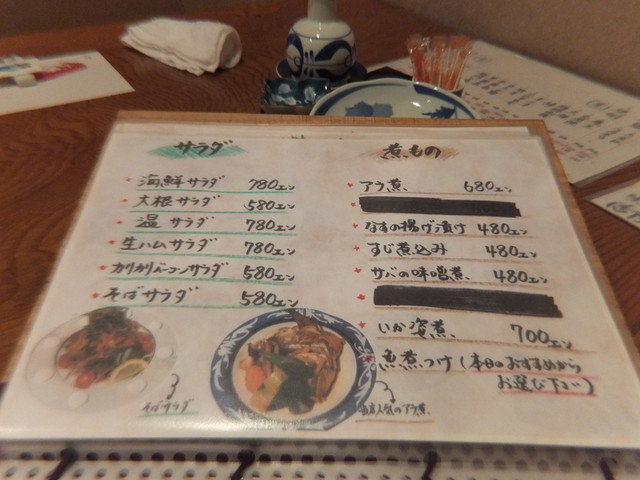 サラダ
海鮮サラダ 780エン
大根サラダ 580エン
温サラダ 780エン
生ハムサラダ 780エン
カリカリベーコンサラダ 580エン
そばサラダ 580エン
そばサラダ
煮もの
アラ煮 680エン
なすの揚げ漬け 480エン
すじ煮込み 480エン
サバの味噌煮 480エン
いか姿煮 700エン
魚煮つけ(本日のおすすめから
お選び下さい)
当店人気のアラ煮